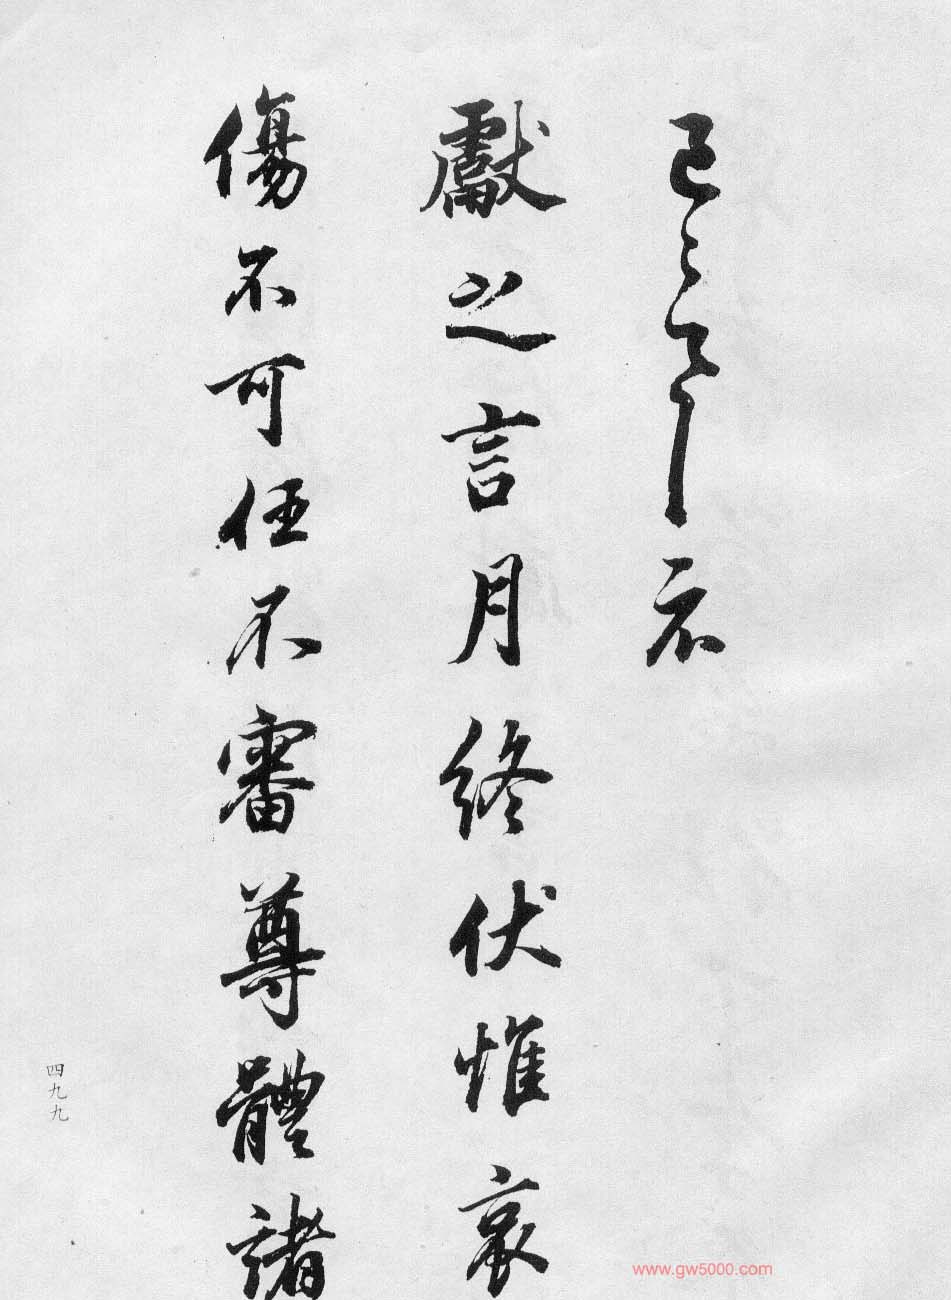 獻之言月終伏惟哀
傷不可任不審尊體諸
四九九
www.gw5000.com